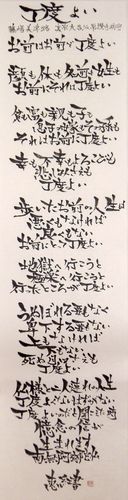 丁度よい
お前はお前で丁度よい
顔も体も名前も姓も
お前にそれは丁度よい
貧も富も親も子も
息子の嫁もその孫も
それはお前に丁度よい
幸も不幸もよろこびも
悲しみさえも
丁度よい
歩いたお前の人生は
悪くもなければ良くもない
お前にとって丁度よい
地獄へ行こうと
極楽へ行こうと
行ったところが丁度よい
うぬぼれる要もなく
卑下する要もない
上もなければ下もない
死ぬ月日さえも
丁度よい
仏様と二人連の人生
丁度よくないはずがない
丁度よいのだと聞こえた時
憶念の信が
生まれます
南無阿弥陀仏